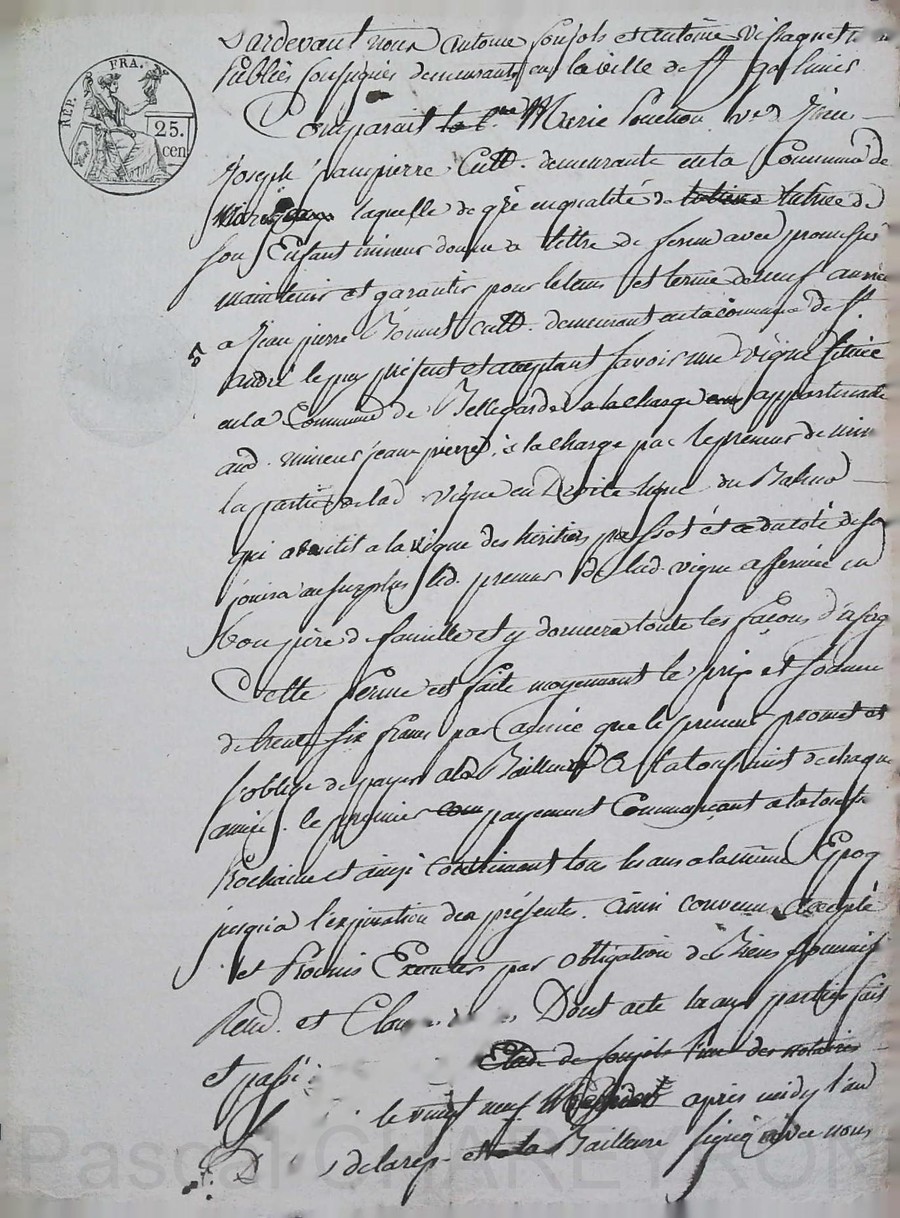 REP. FRA.
25.
cen
Pardevant nous Antoine Soujols et antoine
Publics soussignés demeurants en la ville de St galmier
Comparait Marie Pouchon ve. Jean
Joseph Jampierre Cult. demeurante en la Commune de
laquelle de gré en qualité de tutrice de
son Enfant mineur donne a tittre de ferme avec promesse
maintenir et garantir pour le tems et terme de neuf années
a Jean pierre Bonnet Cult. demeurant en la commune de St
andré le puy présent et acceptant savoir une vigne située
en la Commune de Bellegarde a la charge appartenante
aud. mineur jean pierre, a la charge par le preneur de
la partie de lad. vigne en Droite ligne du
qui aboutit a la vigne des héritiers passot et
jouira au surplus led. preneur de lad. vigne affermée en
bon père de famille et y donnera toute les façons
Cette ferme est faite moyennant le prix et somme
de trente six francs par année que le preneur promet et
s'oblige de payer a la Bailleuse a la toussaint de chaque
année. le premier payement Commençant a la toussts
Prochaine et ainsi continuant tous les ans a la même Epoq
jusqu'a l'expiration des présentes. ainsi convenu, accepté
et Promis Executer par obligation de Biens soumis
Renon. et Clau Dont acte lu aux parties fait
et passé
Etude de soujols l'un des notaires
le vingt neuf après midy l'an
de la rep. et la Bailleuse signé avec nous
Pascal CHAREYRON